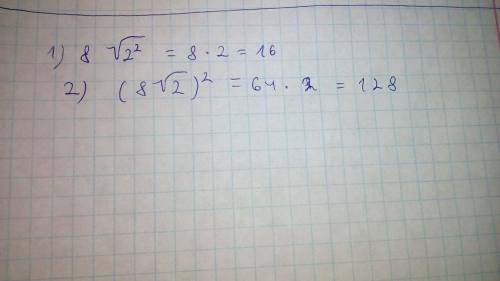 1) 8 √2² = 8 · 2 = 16
2) (8√2)² = 64 · 2 = 128